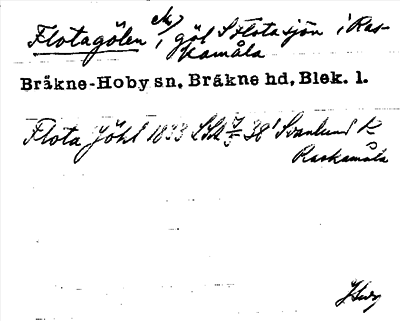 Flotagölen, göl S Flotasjön i Ras-
kamåla
Bräkne-Hoby sn, Bräkne hd, Blek. l.
Flota Göhl 1833 LSA 38' Svanlund
Raskamåla